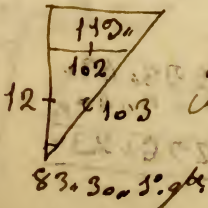 119,,
102
12
103
83. 30,, 1°.